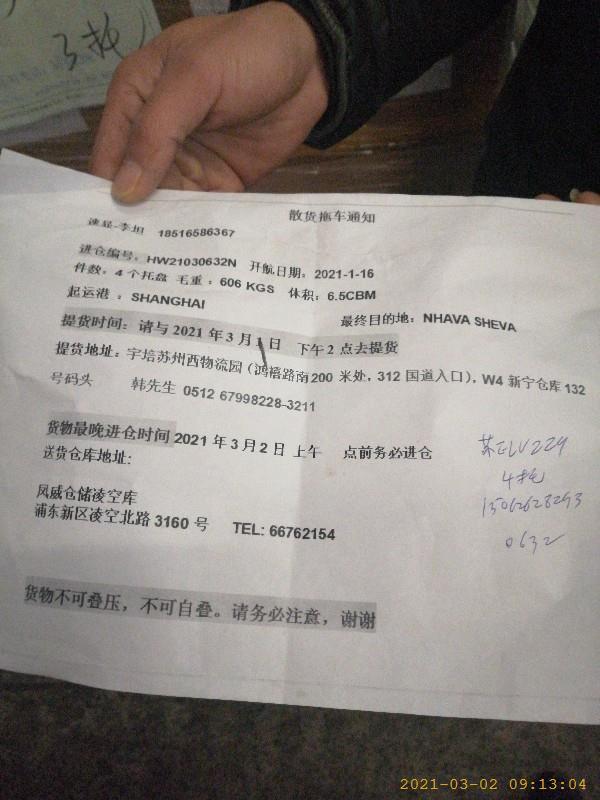 3托
散货拖车通知
速显-李坦 18516586367
进仓编号：HW21030632N 开航日期：2021-1-16
件数：4 个托盘 毛重：606 KGS 体积：6.5CBM
起运港：SHANGHAI 最终目的地：NHAVA SHEVA
提货时间：请与 2021 年 3 月 1 日 下午 2 点去提货
提货地址：宇培苏州西物流园（鸿禧路南 200 米处，312 国道入口），W4 新宁仓库 132
号码头 韩先生 0512 67998228-3211
货物最晚进仓时间 2021 年 3 月 2 日 上午 点前务必进仓
送货仓库地址:
凤威仓储凌空库
浦东新区凌空北路 3160 号 TEL: 66762154
4托
15062628293
0632
货物不可叠压，不可自叠。请务必注意，谢谢
2021-03-02 09:13:04